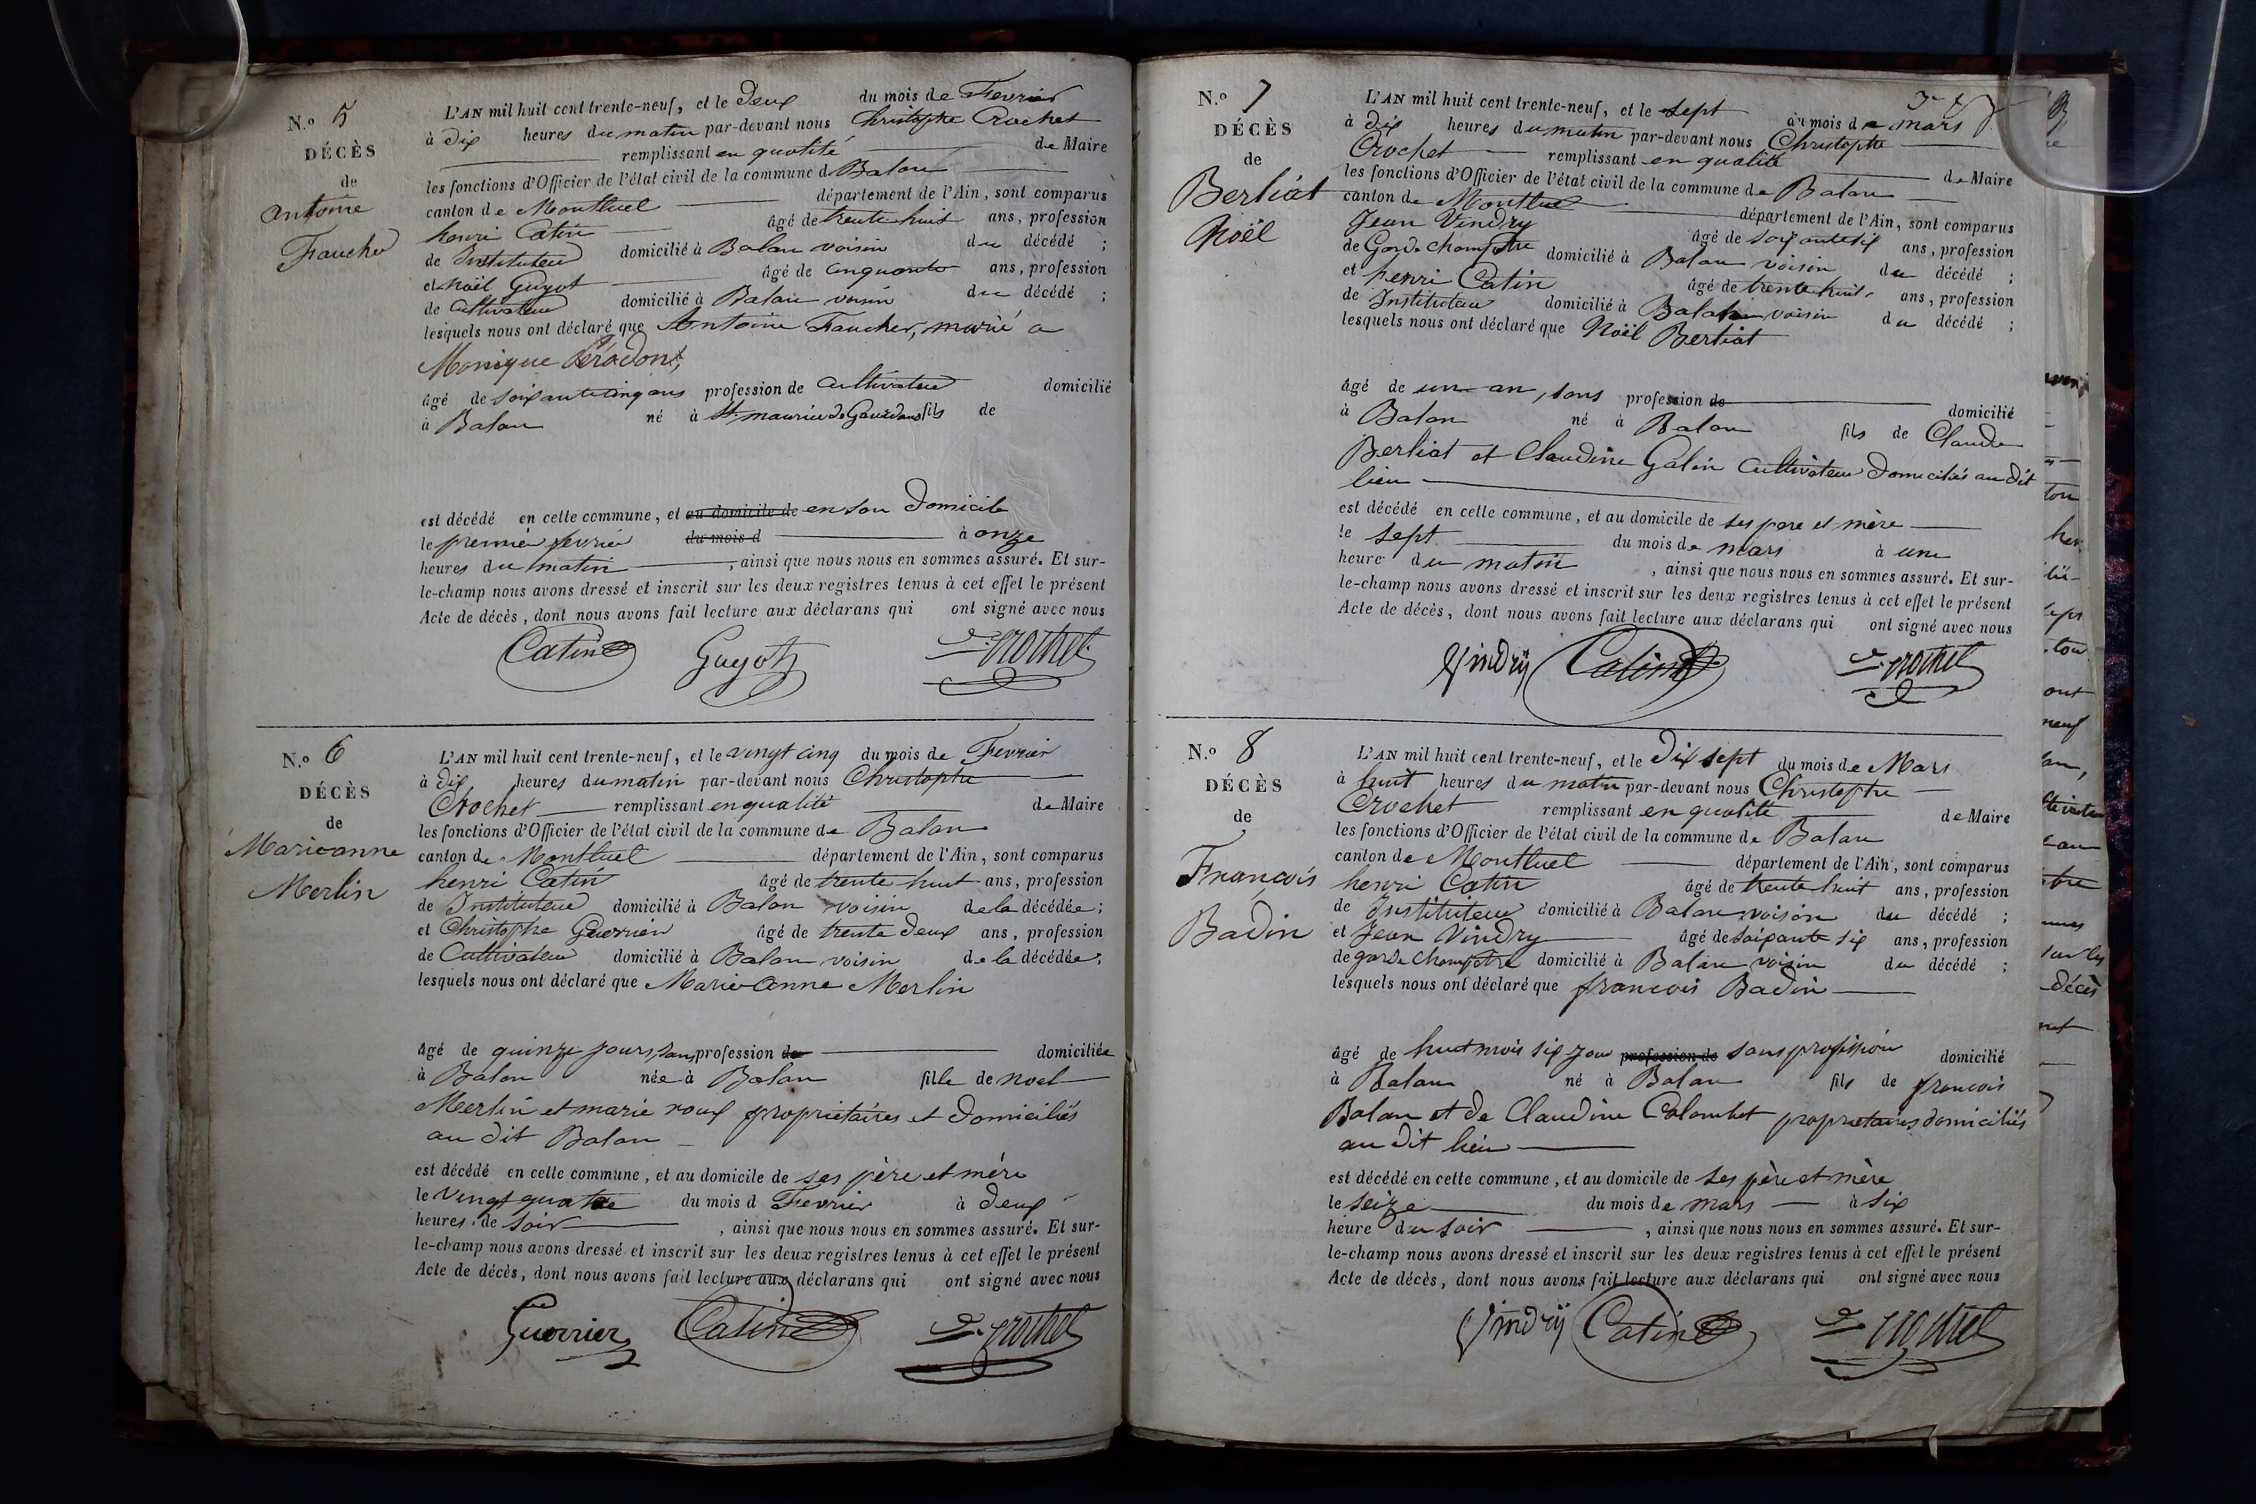 N.o 5
DÉCÈS
de
antoine
Faucher
L'AN mil huit cent trente-neuf, et le Deux du mois de Fevrier
à dix heures du matin par-devant nous Christophe Crochet
remplissant en qualité de Maire
les fonctions d'Officier de l'état civil de la commune d Balan
canton de Montluel département de l'Ain, sont comparus
henri Catin âgé de trente huit ans, profession
de Instituteur domicilié à Balan voisin du décédé ;
et noël Guyot âgé de cinquante ans, profession
de Cultivateur domicilié à Balan voisin du décédé ;
lesquels nous ont déclaré que Antoine Faucher, marié a
Monique Péradont,
âgé de soixante cinq ans profession de cultivateur domicilié
à Balan né à St. maurice de Gourdans fils de
est décédé en cette commune, et au domicile de en son Domicile
le premier fevrier du mois d à onze
heures du matin , ainsi que nous nous en sommes assuré. Et sur-
le-champ nous avons dressé et inscrit sur les deux registres tenus à cet effet le présent
Acte de décès, dont nous avons fait lecture aux déclarans qui ont signé avec nous
Catin Guyot Crochet
N.o 6
DÉCÈS
de
Marieanne
Merlin
L'AN mil huit cent trente-neuf, et le vingt cinq du mois de Fevrier
à dix heures du matin par-devant nous Christophe
Crochet remplissant en qualité de Maire
les fonctions d'Officier de l'état civil de la commune de Balan
canton de Montluel département de l'Ain, sont comparus
henri Catin âgé de trente huit ans, profession
de Instituteur domicilié à Balan voisin de la décédée ;
et Christophe Guerrier âgé de trente deux ans, profession
de Cultivateur domicilié à Balan voisin de la décédée ;
lesquels nous ont déclaré que Marie anne Merlin
âgé de quinze jours, sans profession de domiciliée
à Balan née à Balan fille de noel
Merlin et marie roux proprietaires et domiciliés
au dit Balan
est décédé en cette commune, et au domicile de ses père et mére
le vingt quatre du mois d Fevrier à deux
heures de soir , ainsi que nous nous en sommes assuré. Et sur-
le-champ nous avons dressé et inscrit sur les deux registres tenus à cet effet le présent
Acte de décès, dont nous avons fait lecture aux déclarans qui ont signé avec nous
Guerrier Catin Crochet
N.o 7
DÉCÈS
de
Berliat
Noël
L'AN mil huit cent trente-neuf, et le sept du mois de mars
à dix heures du matin par-devant nous Christophe
Crochet remplissant en qualité de Maire
les fonctions d'Officier de l'état civil de la commune de Balan
canton de Montluel département de l'Ain, sont comparus
Jean Vindry âgé de soixante six ans, profession
de Garde champêtre domicilié à Balan voisin du décédé ;
et henri Catin âgé de trente huit ans, profession
de Instituteur domicilié à Balan voisin du décédé ;
lesquels nous ont déclaré que Noël Berliat
âgé de un an, sans profession de domicilié
à Balan né à Balan fils de Claude
Berliat et Claudine Galin cultivateur domiciliés au dit
lieu
est décédé en cette commune, et au domicile de ses pere et mère
le sept du mois de mars à une
heure du matin , ainsi que nous nous en sommes assuré. Et sur-
le-champ nous avons dressé et inscrit sur les deux registres tenus à cet effet le présent
Acte de décès, dont nous avons fait lecture aux déclarans qui ont signé avec nous
Vindry Catin Crochet
N.o 8
DÉCÈS
de
François
Badin
L'AN mil huit cent trente-neuf, et le Dix sept du mois de Mars
à huit heures du matin par-devant nous Christophe
Crochet remplissant en qualité de Maire
les fonctions d'Officier de l'état civil de la commune de Balan
canton de Montluel département de l'Ain, sont comparus
henri Catin âgé de trente huit ans, profession
de Instituteur domicilié à Balan voisin du décédé ;
et Jean Vindry âgé de soixante six ans, profession
de garde champêtre domicilié à Balan voisin du décédé ;
lesquels nous ont déclaré que francois Badin
âgé de huit mois six jour profession de sans profession domicilié
à Balan né à Balan fils de francois
Balan et de Claudine Colombet proprietaires domiciliés
au dit lieu
est décédé en cette commune, et au domicile de ses père et mère
le seize du mois de mars à six
heure du soir , ainsi que nous nous en sommes assuré. Et sur-
le-champ nous avons dressé et inscrit sur les deux registres tenus à cet effet le présent
Acte de décès, dont nous avons fait lecture aux déclarans qui ont signé avec nous
Vindry Catin Crochet